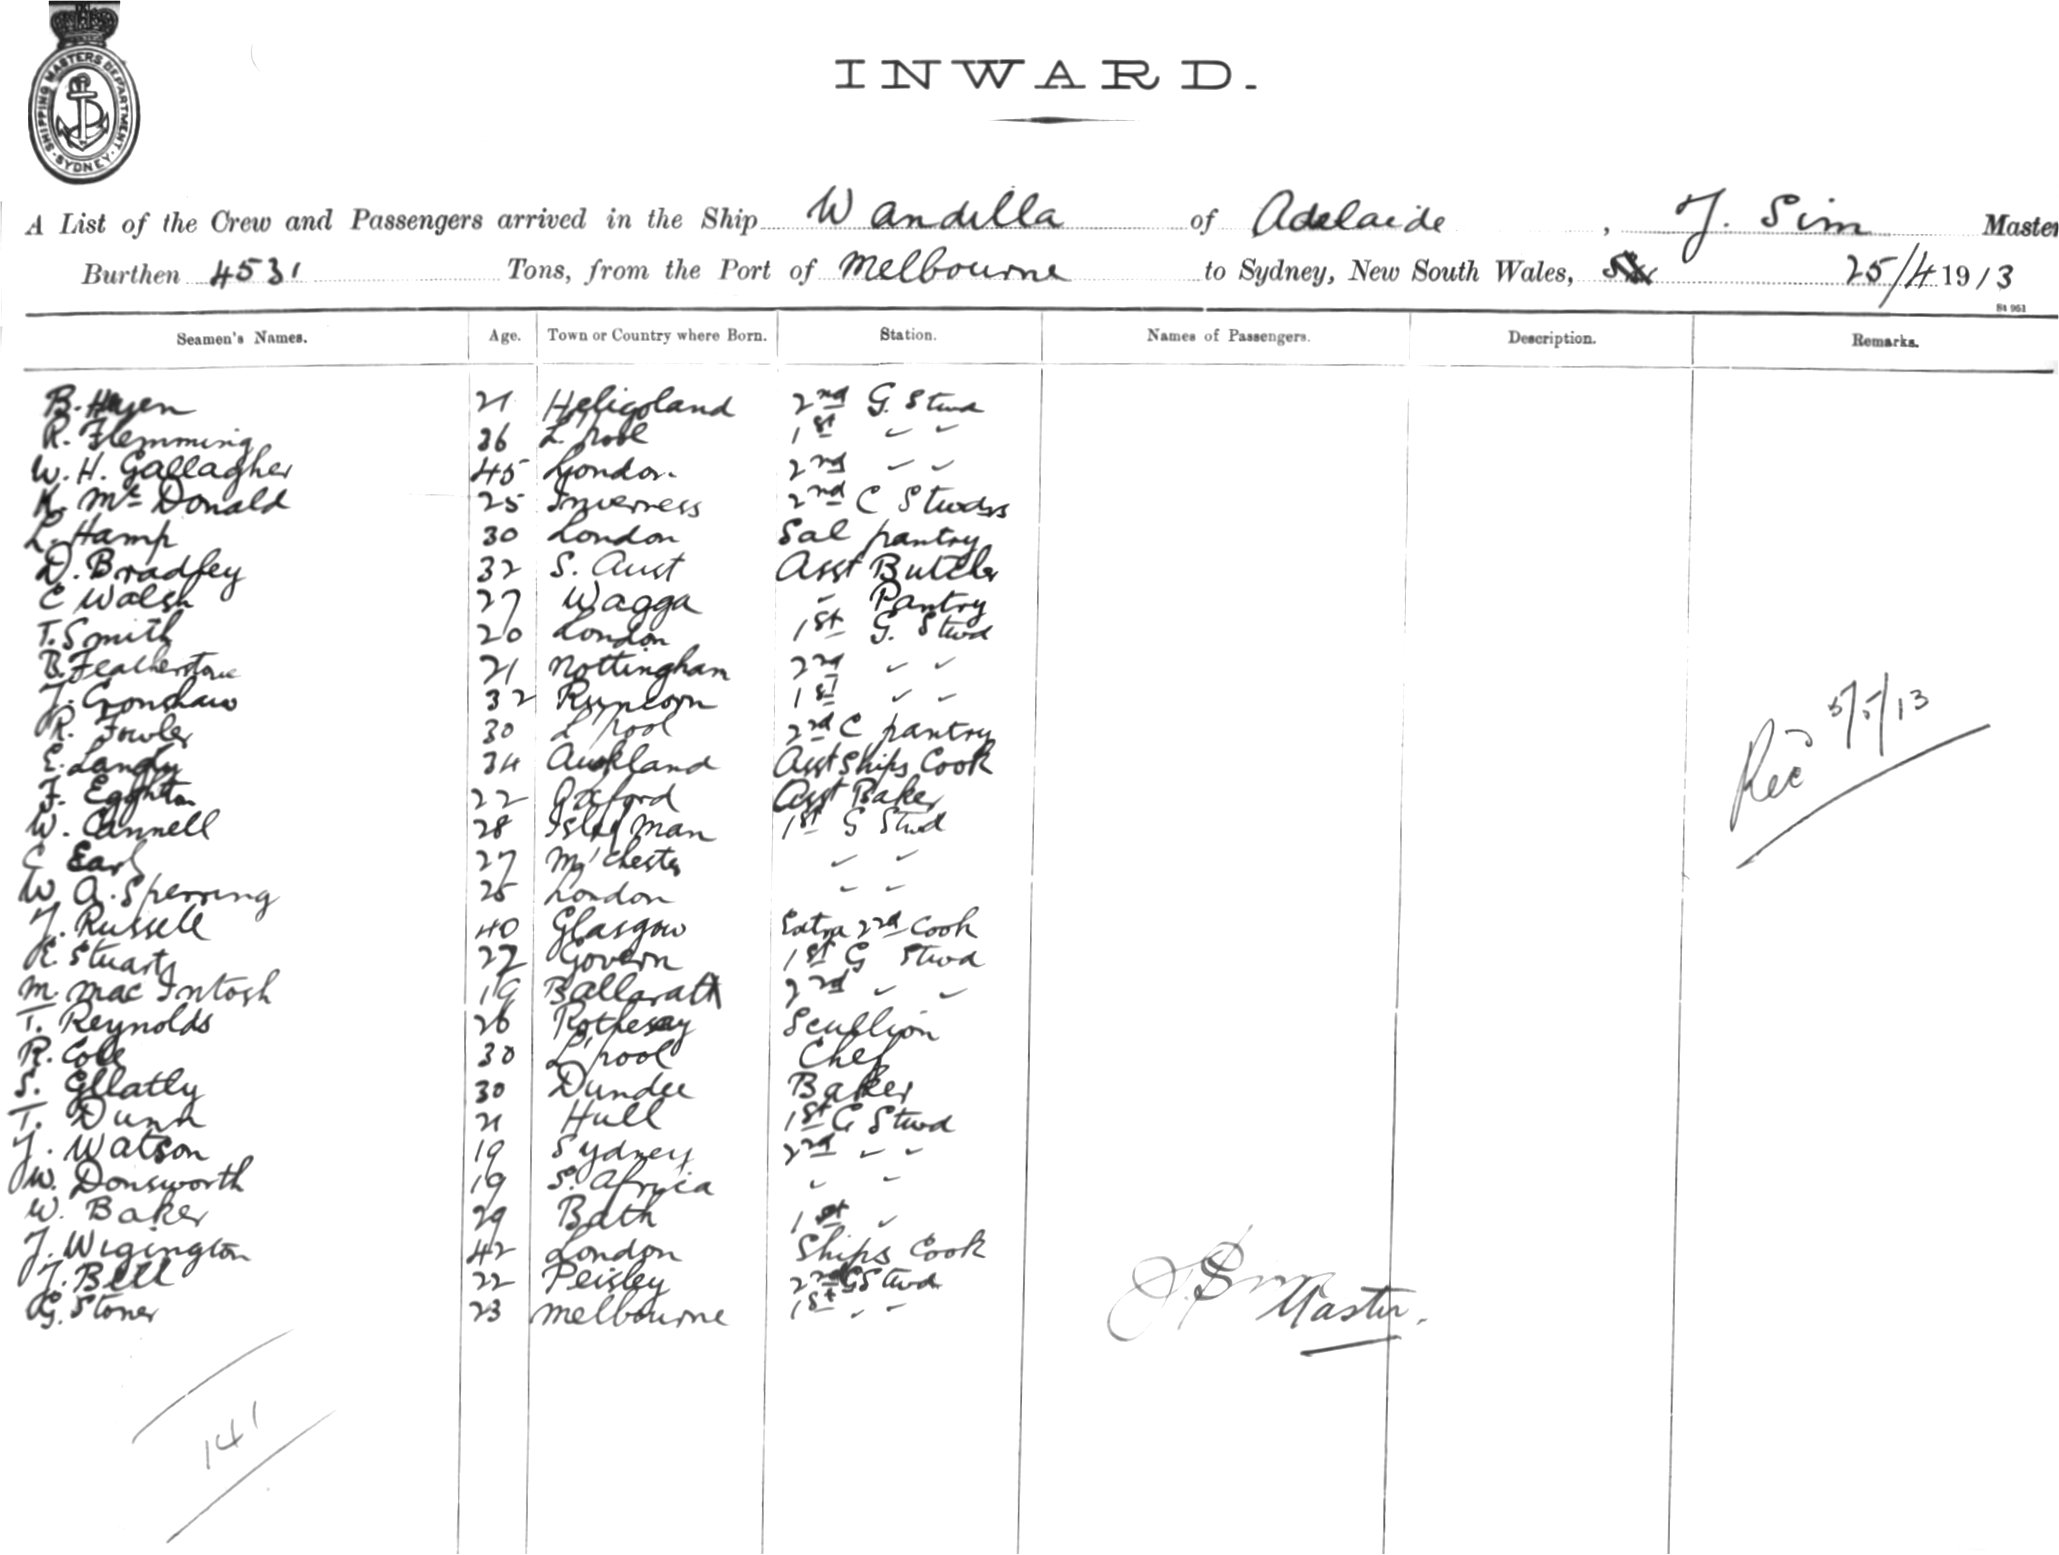 SHIPPING MASTERS DEPARTMENT. SYDNEY
INWARD.
A List of the Crew and Passengers arrived in the Ship Wandilla of Adelaide, J. Sim Master
Burthen 4531 Tons, from the Port of Melbourne to Sydney, New South Wales, 25/4 1913
St 951
Seamen's Names. Age. Town or Country where Born. Station. Names of Passengers. Description. Remarks.
B. 21 Heligoland 2nd G. Stwd
R. Flemming 36 L'pool 1st " "
W. H. Gallagher 45 London 2nd " "
K. Mc Donald 25 Inverness 2nd C Stwdss
L. Hamp 30 London Sal pantry
D. Bradley 32 S. Aust Asst Butcher
C Walsh 27 Wagga " Pantry
T. Smith 20 London 1st G. Stwd
B. Featherstone 21 Nottingham 2nd " "
J. Cronshaw 32 Runcorn 1st " "
R. Fowler 30 L'pool 2nd C pantry
E. Landy 34 Auckland Asst Ships Cook
F. Eghton 22 Oxford Asst Baker
W. Cannell 28 Isle of Man 1st G Stwd
C Earl 27 M'chester " "
W. A. Sperring 25 London " "
J. Russell 40 Glasgow Extra 2nd Cook
E. Stuart 22 Govern 1st G Stwd
M. Mac Intosh 19 Ballarat 2nd " "
T. Reynolds 26 Rothesay Scullion
R. Cole 30 L'pool Chef
S. Gllatly 30 Dundee Baker
T. Dunn 21 Hull 1st G Stwd
J. Watson 19 Sydney 2nd " "
W. Donsworth 19 S. Africa " "
W. Baker 29 Bath 1st "
J. Wigington 42 London Ships Cook
J. Bell 22 Peisley 2nd G Stwd
G. Stoner 23 Melbourne 1st " "
Recd 5/5/13
J. Sim Master.
141